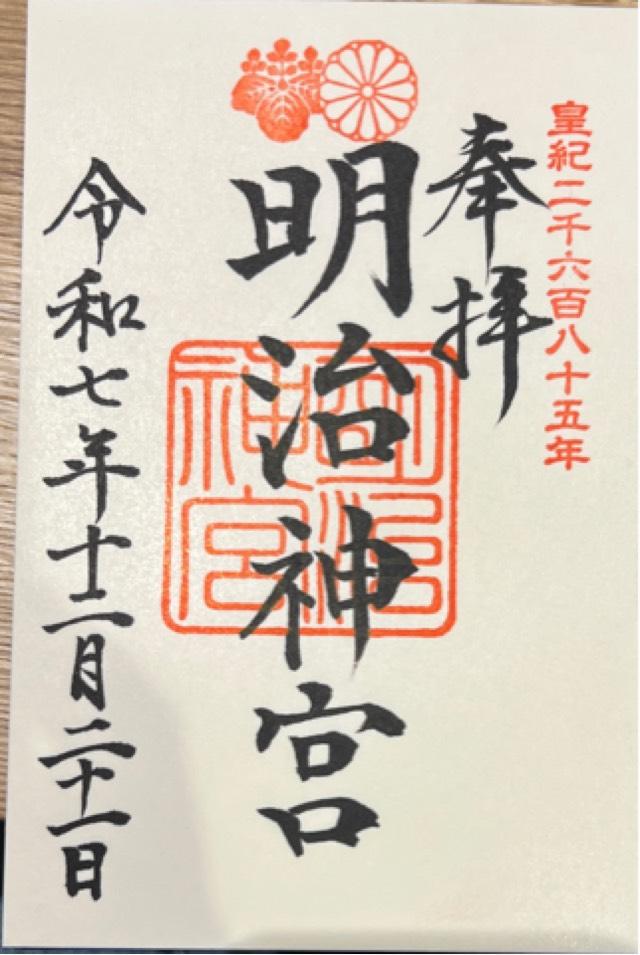 皇紀二千六百八十五年
奉拝
明治神宮
明治神宮
令和七年十二月二十一日